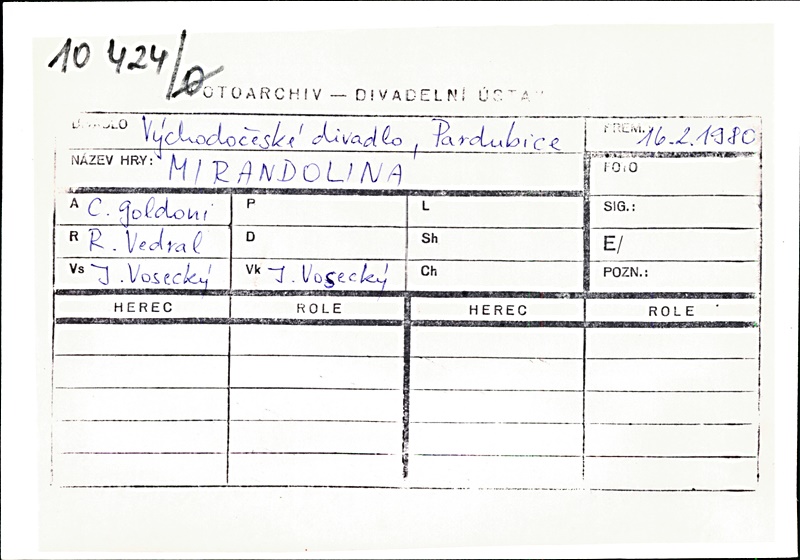 10 424/D
FOTOARCHIV — DIVADELNÍ ÚSTAV
DIVADLO Východočeské divadlo, Pardubice PREM. 16.2.1980
NÁZEV HRY: MIRANDOLINA FOTO
A C. Goldoni P L SIG.:
R R. Vedral D Sh E/
Vs J. Vosecký Vk J. Vosecký Ch POZN.:
HEREC ROLE HEREC ROLE